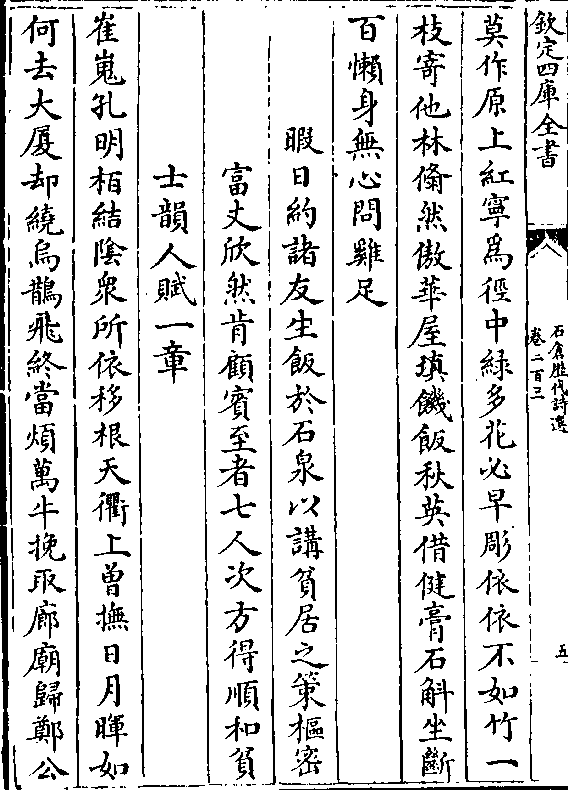 欽定四庫全書
石倉歷代詩選
卷二百三
五
莫作原上紅寧為徑中緑多花必早彫依依不如竹一
枝寄他林翛然傲華屋瑱饑飯秋英借健膏石斛坐斷
百懶身無心問雞足
暇日約諸友生飯於石泉以講貧居之策樞密
富丈欣然肯顧賓至者七人次方得順和貧
士韻人賦一章
崔嵬孔明柏結陰衆所依移根天衢上曾撫日月暉如
何去大厦却繞烏鵲飛終當煩萬牛挽取廊廟歸鄭公